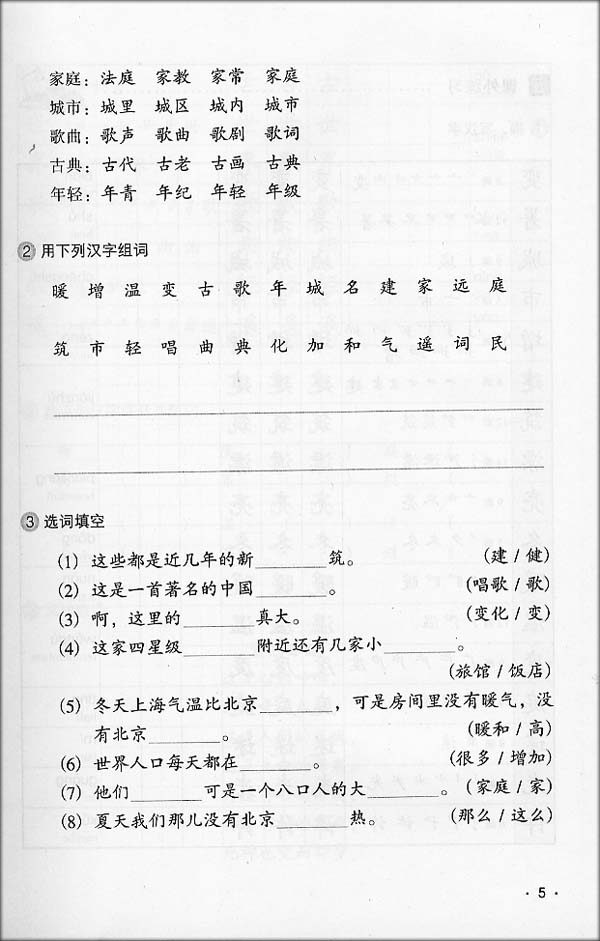 家庭：法庭 家教 家常 家庭
城市：城里 城区 城内 城市
歌曲：歌声 歌曲 歌剧 歌词
古典：古代 古老 古画 古典
年轻：年青 年纪 年轻 年级
2 用下列汉字组词
暖 增 温 变 古 歌 年 城 名 建 家 远 庭
筑 市 轻 唱 曲 典 化 加 和 气 遥 词 民
3 选词填空
(1) 这些都是近几年的新________筑。 (建 / 健)
(2) 这是一首著名的中国________。 (唱歌 / 歌)
(3) 啊，这里的________真大。 (变化 / 变)
(4) 这家四星级________附近还有几家小________。
(旅馆 / 饭店)
(5) 冬天上海气温比北京________，可是房间里没有暖气，没
有北京________。 (暖和 / 高)
(6) 世界人口每天都在________。 (很多 / 增加)
(7) 他们________可是一个八口人的大________。 (家庭 / 家)
(8) 夏天我们那儿没有北京________热。 (那么 / 这么)
· 5 ·